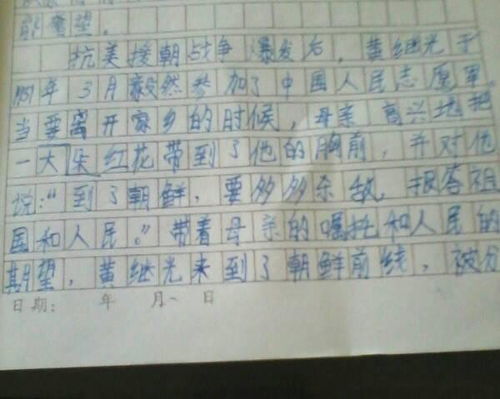 的希望。
抗美援朝战争爆发后，黄继光于
1951年3月毅然参加了中国人民志愿军
当要离开家乡的时候，母亲高兴地把
一大朵红花带到了他的胸前，并对他
说：“到了朝鲜，要多多杀敌，报答祖
国和人民。”带着母亲的嘱托和人民的
期望，黄继光来到了朝鲜前线，被分
日期： 年 月 日